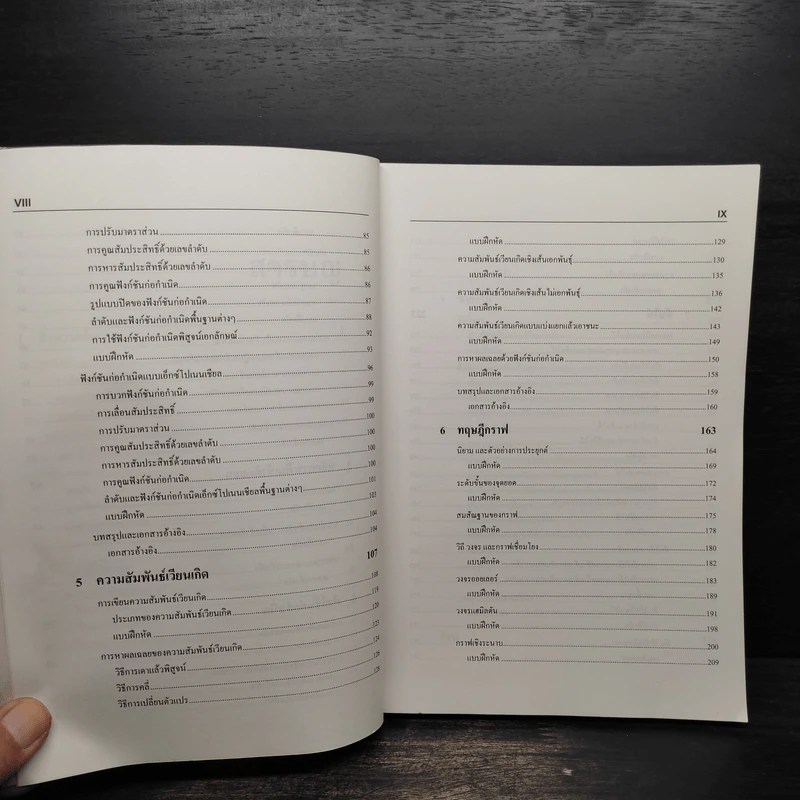 VIII
การปรับมาตราส่วน 85
การคูณสัมประสิทธิ์ด้วยเลขลำดับ 85
การหารสัมประสิทธิ์ด้วยเลขลำดับ 86
การคูณฟังก์ชันก่อกำเนิด 86
รูปแบบปิดของฟังก์ชันก่อกำเนิด 87
ลำดับและฟังก์ชันก่อกำเนิดพื้นฐานต่างๆ 88
การใช้ฟังก์ชันก่อกำเนิดพิสูจน์เอกลักษณ์ 92
แบบฝึกหัด 93
ฟังก์ชันก่อกำเนิดแบบเอ็กซ์โปเนนเชียล 96
การบวกฟังก์ชันก่อกำเนิด 99
การเลื่อนสัมประสิทธิ์ 99
การปรับมาตราส่วน 100
การคูณสัมประสิทธิ์ด้วยเลขลำดับ 100
การหารสัมประสิทธิ์ด้วยเลขลำดับ 100
การคูณฟังก์ชันก่อกำเนิด 100
ลำดับและฟังก์ชันก่อกำเนิดเอ็กซ์โปเนนเชียลพื้นฐานต่างๆ 101
แบบฝึกหัด 103
บทสรุปและเอกสารอ้างอิง 104
เอกสารอ้างอิง 104
5 ความสัมพันธ์เวียนเกิด 107
การเขียนความสัมพันธ์เวียนเกิด 108
ประเภทของความสัมพันธ์เวียนเกิด 119
แบบฝึกหัด 120
การหาผลเฉลยของความสัมพันธ์เวียนเกิด 123
วิธีการเดาแล้วพิสูจน์ 124
วิธีการคลี่ 126
วิธีการเปลี่ยนตัวแปร 128
IX
แบบฝึกหัด 129
ความสัมพันธ์เวียนเกิดเชิงเส้นเอกพันธุ์ 130
แบบฝึกหัด 135
ความสัมพันธ์เวียนเกิดเชิงเส้นไม่เอกพันธุ์ 136
แบบฝึกหัด 142
ความสัมพันธ์เวียนเกิดแบบแบ่งแยกแล้วเอาชนะ 143
แบบฝึกหัด 149
การหาผลเฉลยด้วยฟังก์ชันก่อกำเนิด 150
แบบฝึกหัด 158
บทสรุปและเอกสารอ้างอิง 159
เอกสารอ้างอิง 160
6 ทฤษฎีกราฟ 163
นิยาม และตัวอย่างการประยุกต์ 164
แบบฝึกหัด 169
ระดับขั้นของจุดยอด 172
แบบฝึกหัด 174
สมสัณฐานของกราฟ 175
แบบฝึกหัด 178
วิถี วงจร และกราฟเชื่อมโยง 180
แบบฝึกหัด 182
วงจรออยเลอร์ 183
แบบฝึกหัด 189
วงจรแฮมิลตัน 191
แบบฝึกหัด 198
กราฟเชิงระนาบ 200
แบบฝึกหัด 209